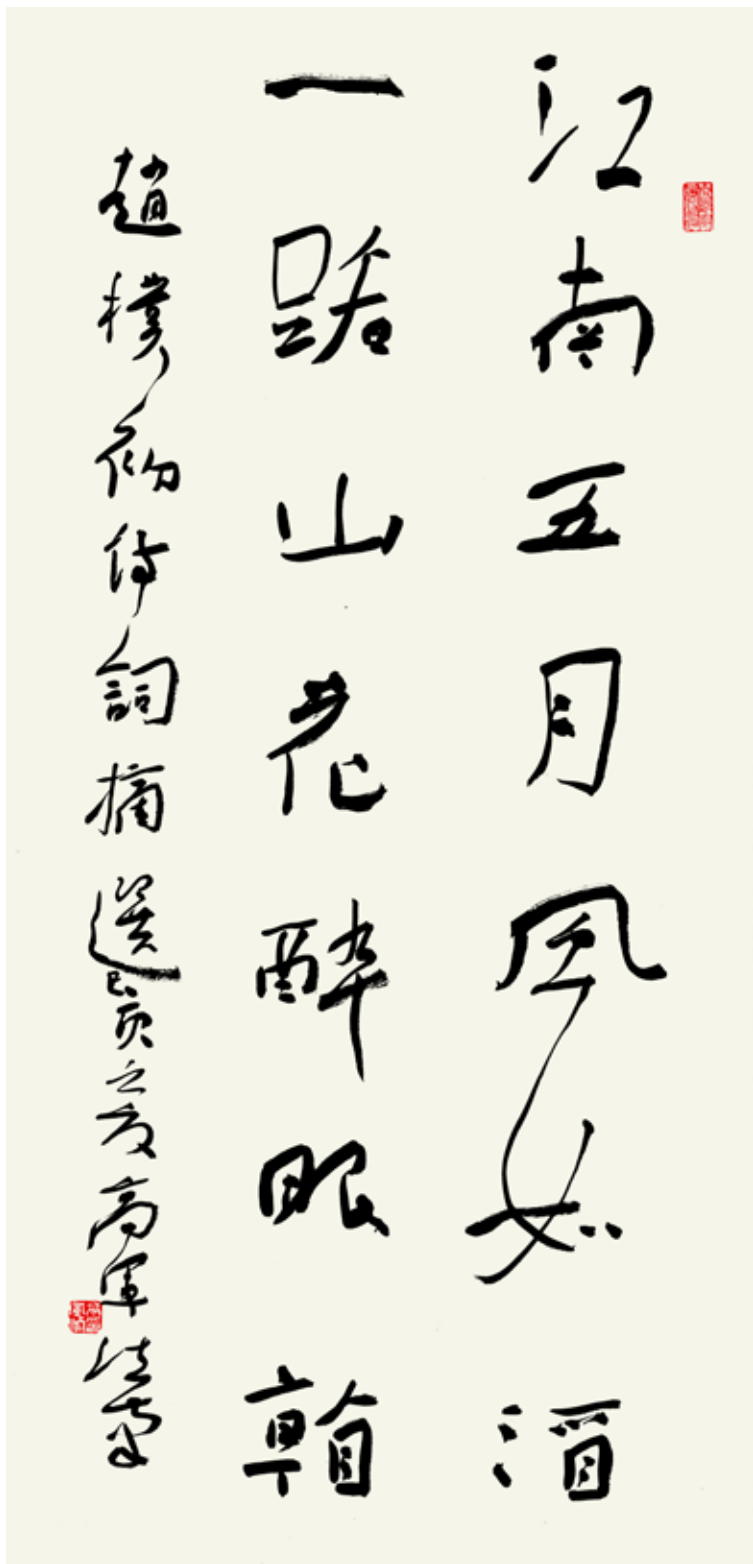 江南五月風如酒
一路山花醉眼
趙樸初詩詞摘選己亥之夏高軍